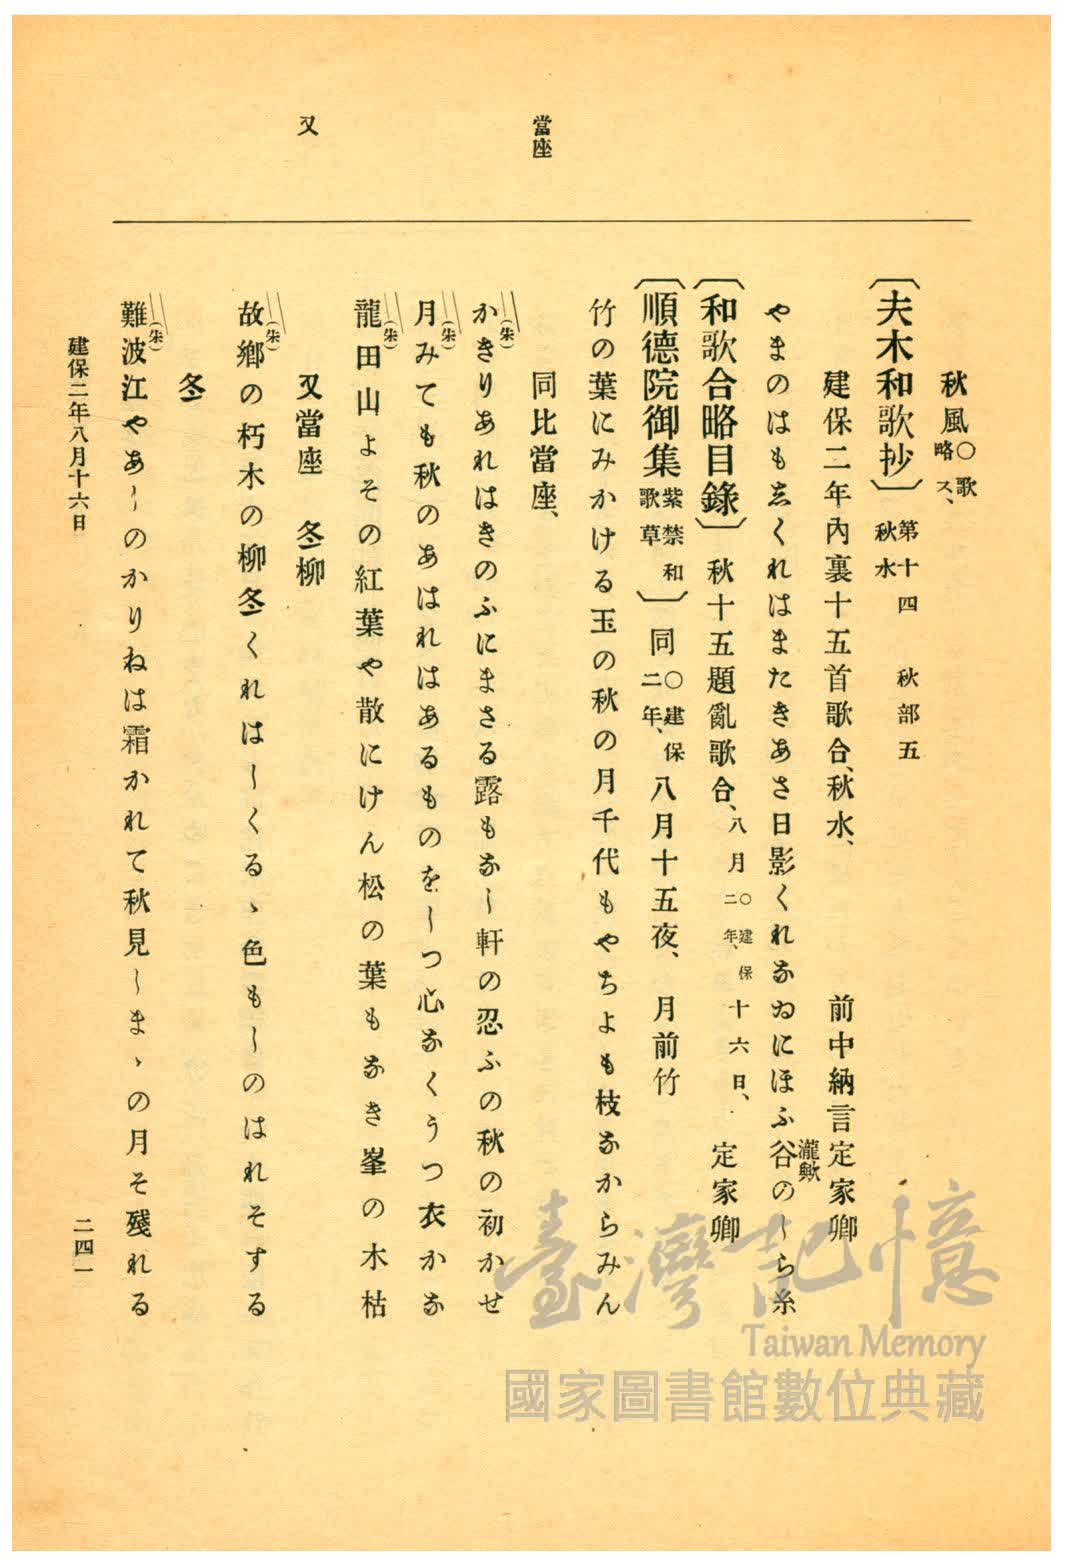 當座
又
秋風〇歌略ス、
〔夫木和歌抄〕第十四 秋部五 秋水
建保二年內裏十五首歌合、秋水、 前中納言定家卿
やまのはも志くれはまたきあさ日影くれなゐにほふ谷のしら糸
瀧歟
〔和歌合略目錄〕秋十五題亂歌合、八月〇建保二年、十六日、 定家卿
〔順德院御集紫禁和歌草〕同〇建保二年、八月十五夜、 月前竹
竹の葉にみかける玉の秋の月千代もやちよも枝なからみん
同比當座、
(朱)
かきりあれはきのふにまさる露もなし軒の忍ふの秋の初かせ
(朱)
月みても秋のあはれはあるものをしつ心なくうつ衣かな
(朱)
龍田山よその紅葉や散にけん松の葉もなき峯の木枯
又當座 冬柳
(朱)
故鄕の朽木の柳冬くれはしくるゝ色もしのはれそする
冬
(朱)
難波江やあしのかりねは霜かれて秋見しまゝの月そ殘れる
建保二年八月十六日
二四一
臺灣記憶
Taiwan Memory
國家圖書館數位典藏